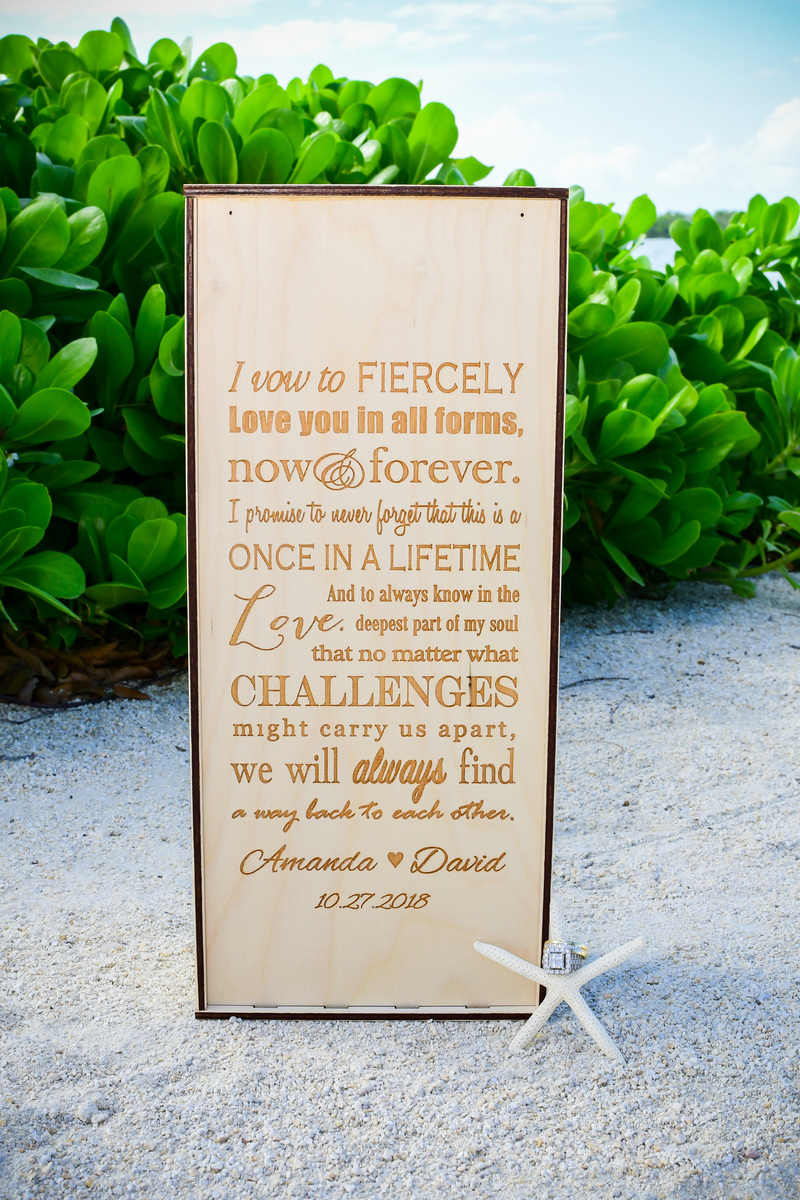 I vow to FIERCELY
Love you in all forms,
now & forever.
I promise to never forget that this is a
ONCE IN A LIFETIME
Love.
And to always know in the
deepest part of my soul
that no matter what
CHALLENGES
might carry us apart,
we will always find
a way back to each other.
Amanda ♥ David
10.27.2018